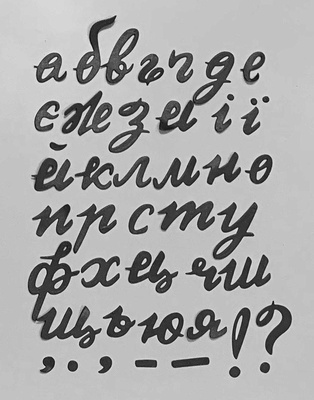 а б в г ґ д е
є ж з и і ї
й к л м н о
п р с т у
ф х ц ч ш
щ ь ю я ! ?
, . , - —